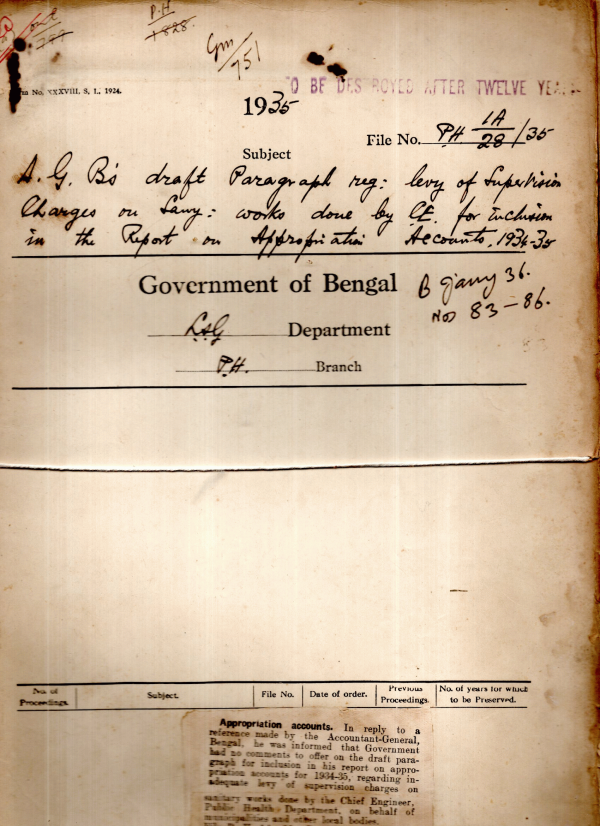 P.H
1828.
Gm/751
TO BE DESTROYED AFTER TWELVE YEARS
Form No. XXXVIII, S. I., 1924.
1935
File No. P.H 1A/28/35
Subject
A. G. B's draft Paragraph reg: levy of Supervision
Charges on Sany: works done by CE. for inclusion
in the Report on Appropriation Accounts, 1934-35
Government of Bengal
B Jany 36.
Nos 83-86.
L.S.G Department
P.H. Branch
No. of Proceedings. Subject. File No. Date of order. Previous Proceedings. No. of years for which to be Preserved.
Appropriation accounts. In reply to a
reference made by the Accountant-General,
Bengal, he was informed that Government
had no comments to offer on the draft para-
graph for inclusion in his report on appro-
priation accounts for 1934-35, regarding in-
adequate levy of supervision charges on
sanitary works done by the Chief Engineer,
Public Health Department, on behalf of
municipalities and other local bodies.